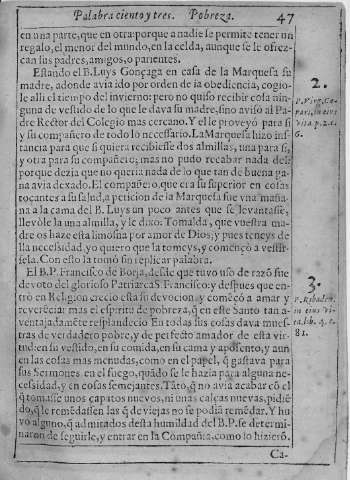 Palabra ciento y tres. Pobreza. 47
en una parte, que en otra: porque a nadie se permite tener un
regalo, el menor del mundo, en la celda, aunque se le ofrez-
can sus padres, amigos, o parientes.
Estando el B. Luys Gonçaga en casa de la Marquesa su
madre, adonde avia ido por orden de la obediencia, cogio-
le alli el tiempo del invierno: pero no quiso recibir cosa nin-
guna de vestido de lo que le dava su madre, sino avisò al Pa-
dre Retor del Colegio mas cercano. Y el le proveyò para si
y su compañero de todo lo necessario. La Marquesa hizo ins-
tancia para que si quiera recibiesse dos almillas, una para si,
y otra para su compañero; mas no pudo recabar nada del:
porque dezia que no queria nada de lo que tan de buena ga-
na avia dexado. El compañero, que era su superior en cosas
tocantes a su salud, a peticion de la Marquesa fue una maña-
na a la cama del B. Luys un poco antes que se levantasse,
llevòle la una almilla, y le dixo: Tomalda, que vuestra ma-
dre os haze esta limosna por amor de Dios; y pues teneys de
lla necessidad, yo quiero que la tomeys, y començò a vestir-
sela. Con esto la tomò sin replicar palabra.
El B. P. Francisco de Borja, desde que tuvo uso de razõ fue
devoto del glorioso Patriarca S. Francisco: y despues que en-
trò en Religion crecio esta su devocion, y comẽçò a amar y
reverẽciar mas el espiritu de pobreza, q̃ en este Santo tan a-
ventajadamẽte resplandecio En todas sus cosas dava mues-
tras de verdadero pobre, y de perfecto amador de esta vir-
tud: en su vestido, en su comida, en su cama y aposento, y aun
en las cosas mas menudas, como en el papel, q̃ gastava para
sus Sermones en el fuego, quãdo se le hazia para alguna ne-
cessidad, y en cosas semejantes. Tãto, q̃ no avia acabar cõ el
q̃ tomasse unos çapatos nuevos, ni unas calças nuevas, pidiẽ
dò, q̃ le remẽdassen las q̃ de viejas no se podiã remẽdar. Y hu
vo alguno, q̃ admirados desta humildad del B. P. se determi-
naron de seguirle, y entrar en la Compañia, como lo hizierõ.
Ca-
2.
P. Virg. Ce-
pari, in eius
vita p. 2. c.
6.
3.
P. Ribaden.
in eius vi-
ta, lib. 4. c.
81.